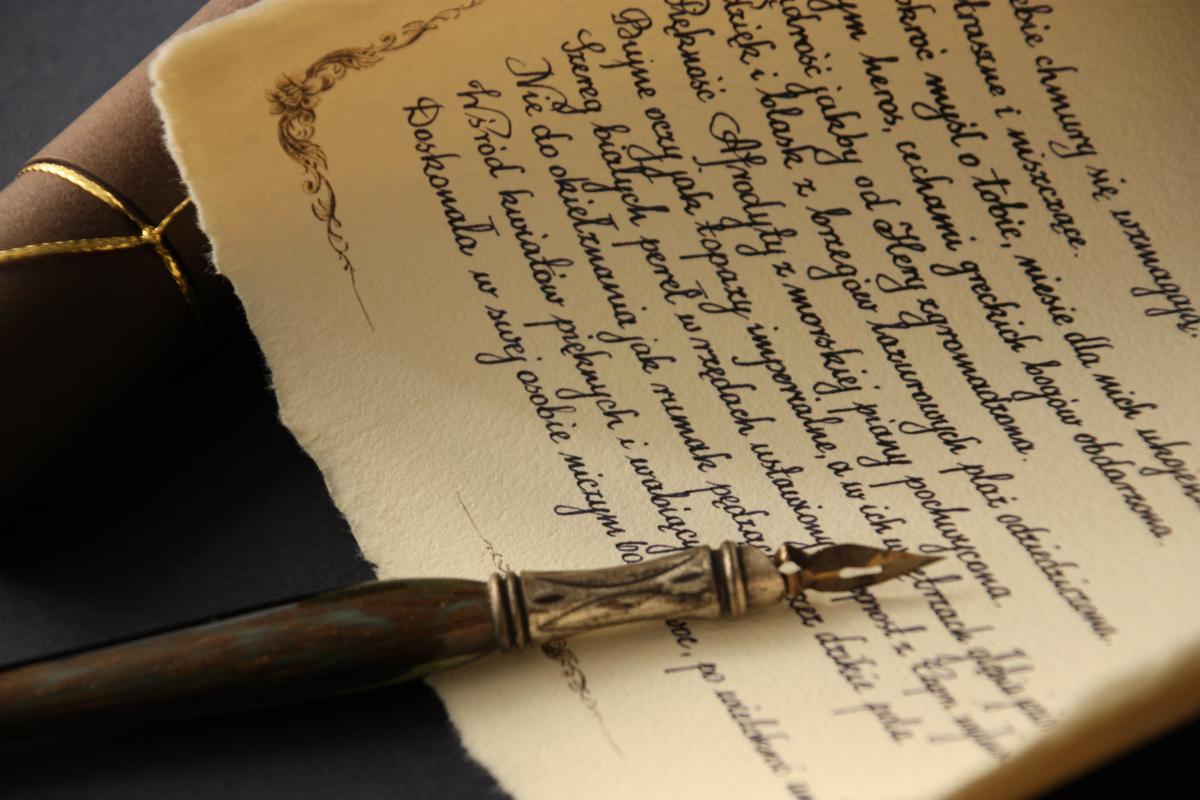 chmury się wzmagają.
straszne i niszczące.
myśl o tobie, niesie dla nich
heros, cechami greckich bogów obdarzona.
jakby od Hery zgromadzona.
i blask z brzegów lazurowych plaż odziedziczona.
Piękność Afrodyty z morskiej piany pochwycona.
Bujne oczy jak topazy imperialne, a w ich
Szereg białych pereł w rzędach ustawiony z
Nie do okiełznania jak rumak dzikie pola
Wśród kwiatów pięknych i
Doskonała w swej osobie niczym po